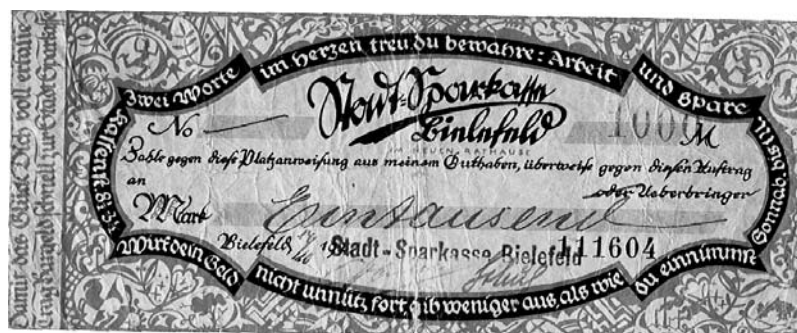 Damit das Glück Dich voll erfaue
Trag Bargeld schnell zur Stadt Sparkasse
Zwei Worte im Herzen treu du bewahre: Arbeit und Spare
Stadt-Sparkasse
Bielefeld
IM NEUEN RATHAUSE
No
1000 M
Zahle gegen diese Platzanweisung aus meinem Guthaben, überweise gegen diesen Auftrag
an
oder Ueberbringer
Mark Eintausend
Bielefeld,
Stadt-Sparkasse Bielefeld 111604
Wirf dein Geld nicht unnütz fort, gib weniger aus, als wie du einnimmst
Sonnab. bis